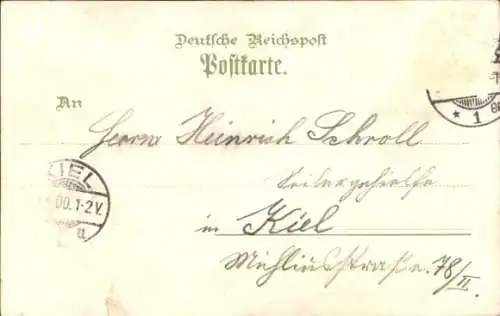 Deutsche Reichspost
Postkarte.
An
Herrn Heinrich Schroll
in Kiel
Mühliusstraße. 78/II.
KIEL
.00.1-2V.
* 1